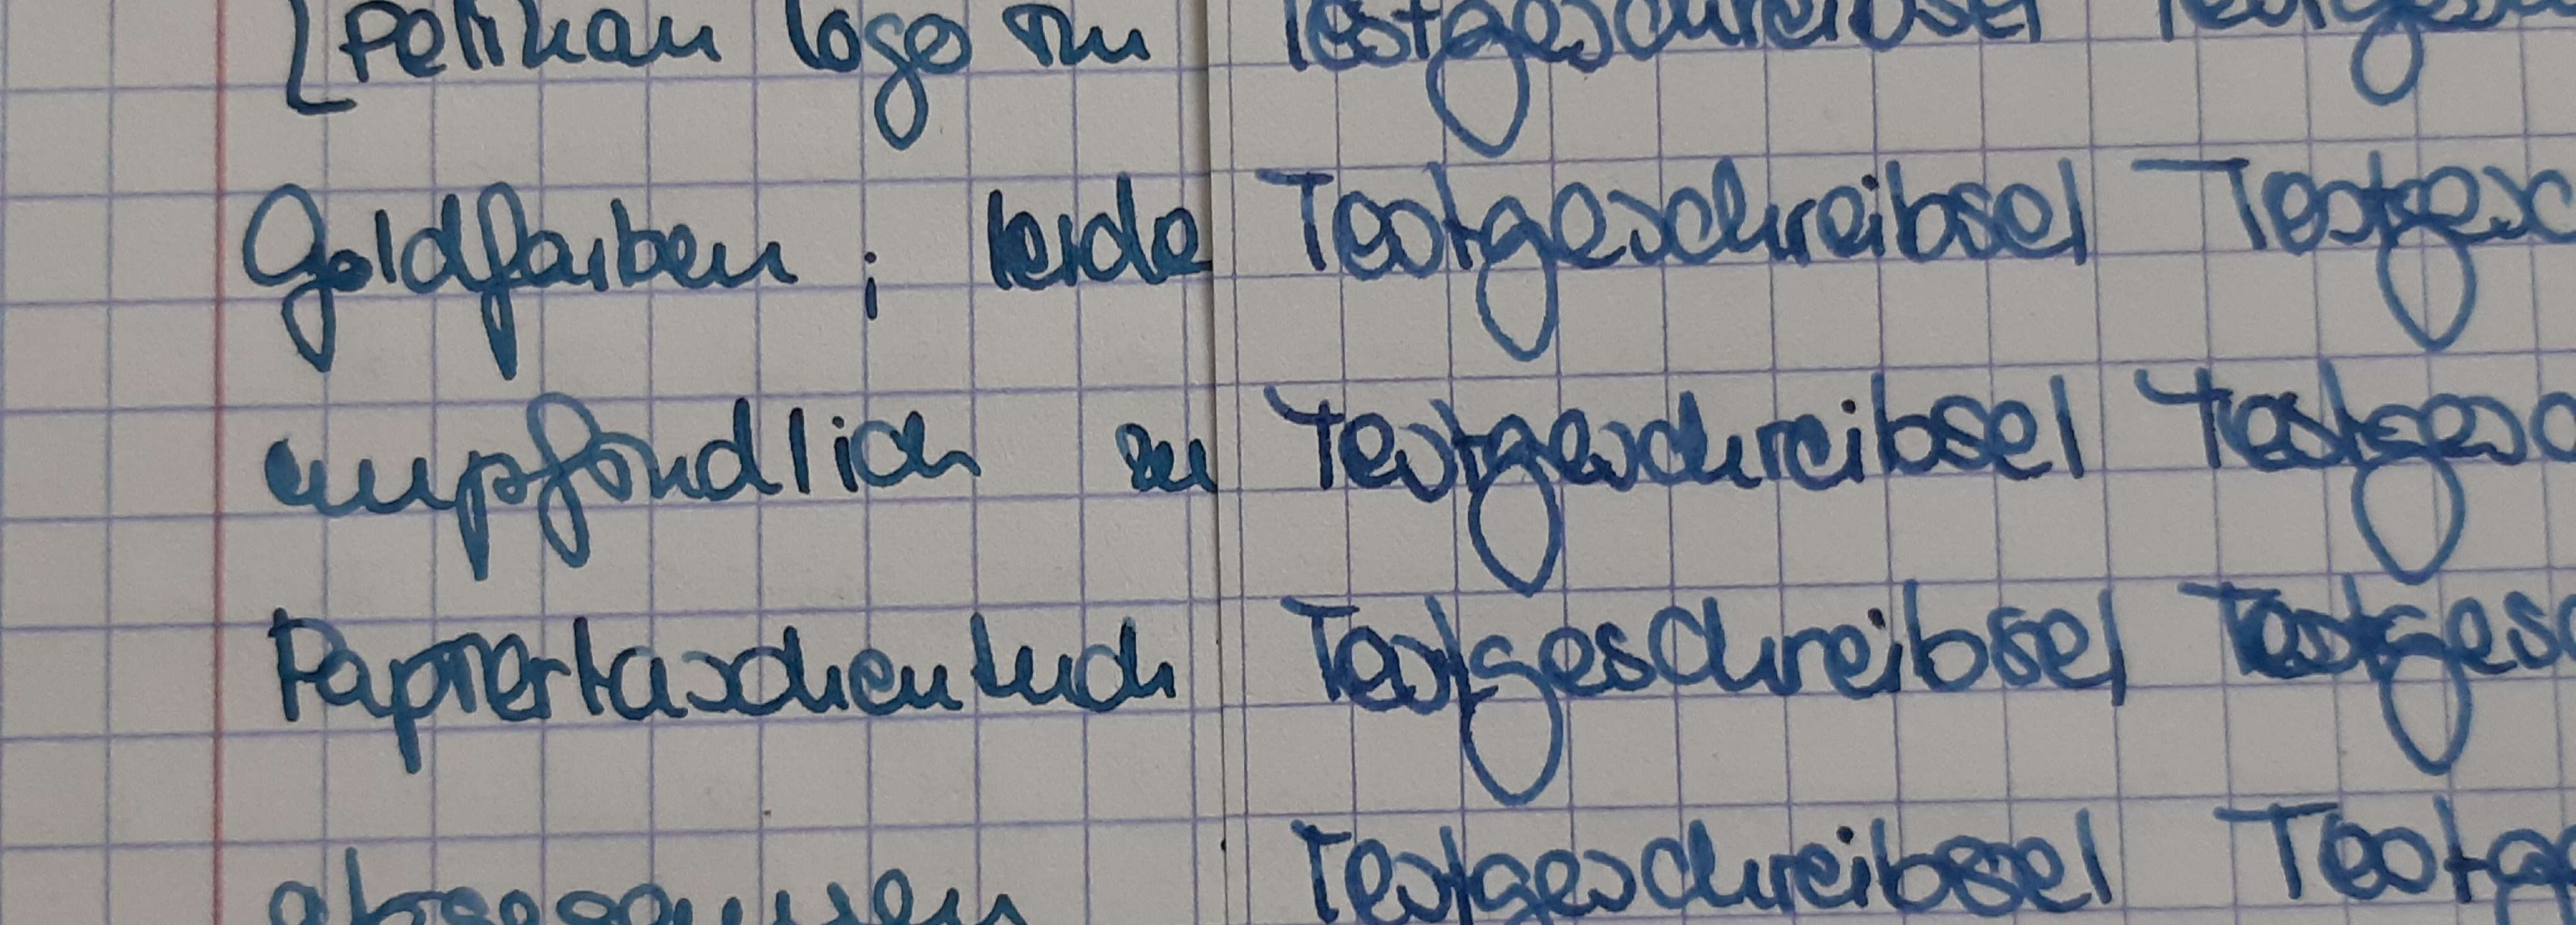 [Pelikan logo in
Goldfarben; leide
empfindlich zu
Papiertaschentuch
Testgeschreibsel
Testgeschreibsel Testgesc
Testgeschreibsel Testgesc
Testgeschreibsel Testgesc
Testgeschreibsel Testg